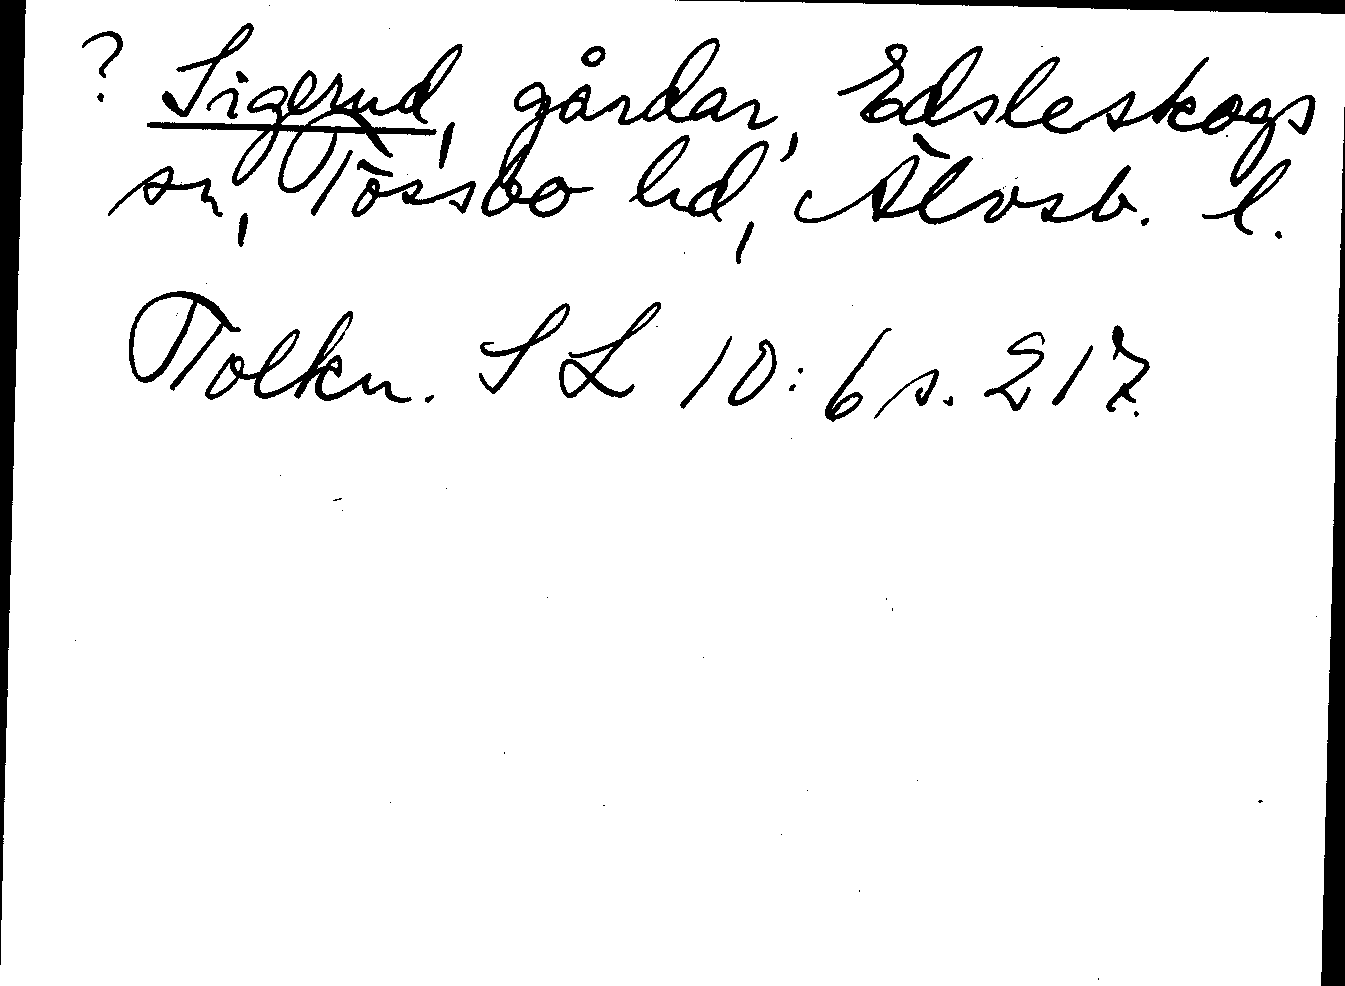 ? Sigerud, gårdar, Edsleskogs
sn, Tössbo hd, Älvsb. l.
Tolkn. SL 10:6 s. 217.